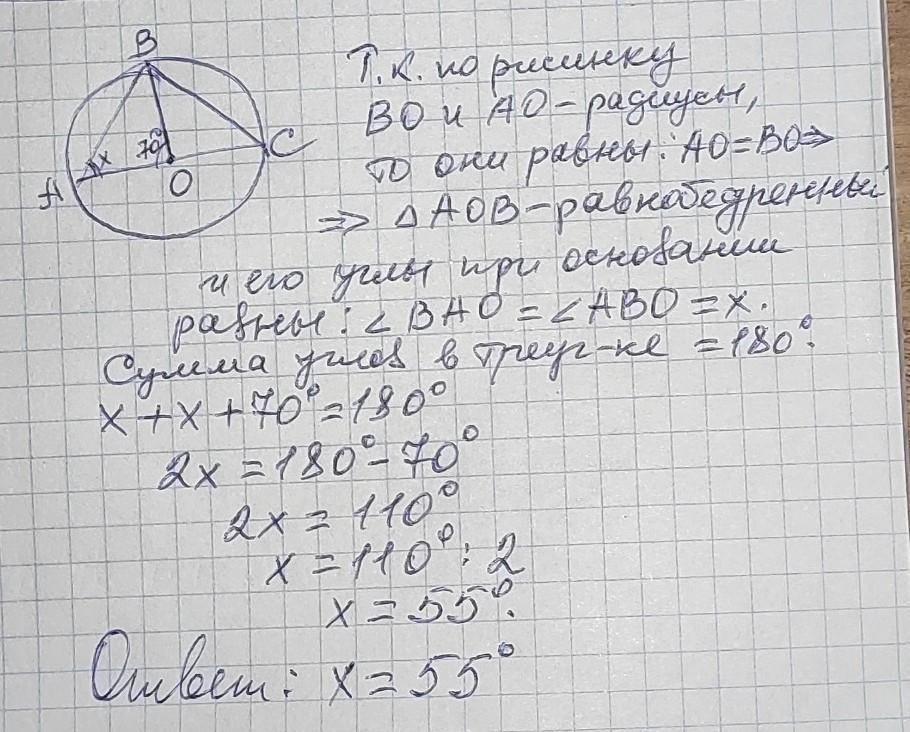 B
A
x
70°
O
C
Т.к. по рисинку
ВО и АО - радиусы,
то они равны: АО=ВО⇒
⇒ △АОВ - равнобедренный
и его углы при основании
равны: ∠ВАО = ∠АВО = х.
Сумма углов в треуг-ке = 180°:
х + х + 70° = 180°
2х = 180° - 70°
2х = 110°
х = 110° : 2
х = 55°.
Ответ: х = 55°